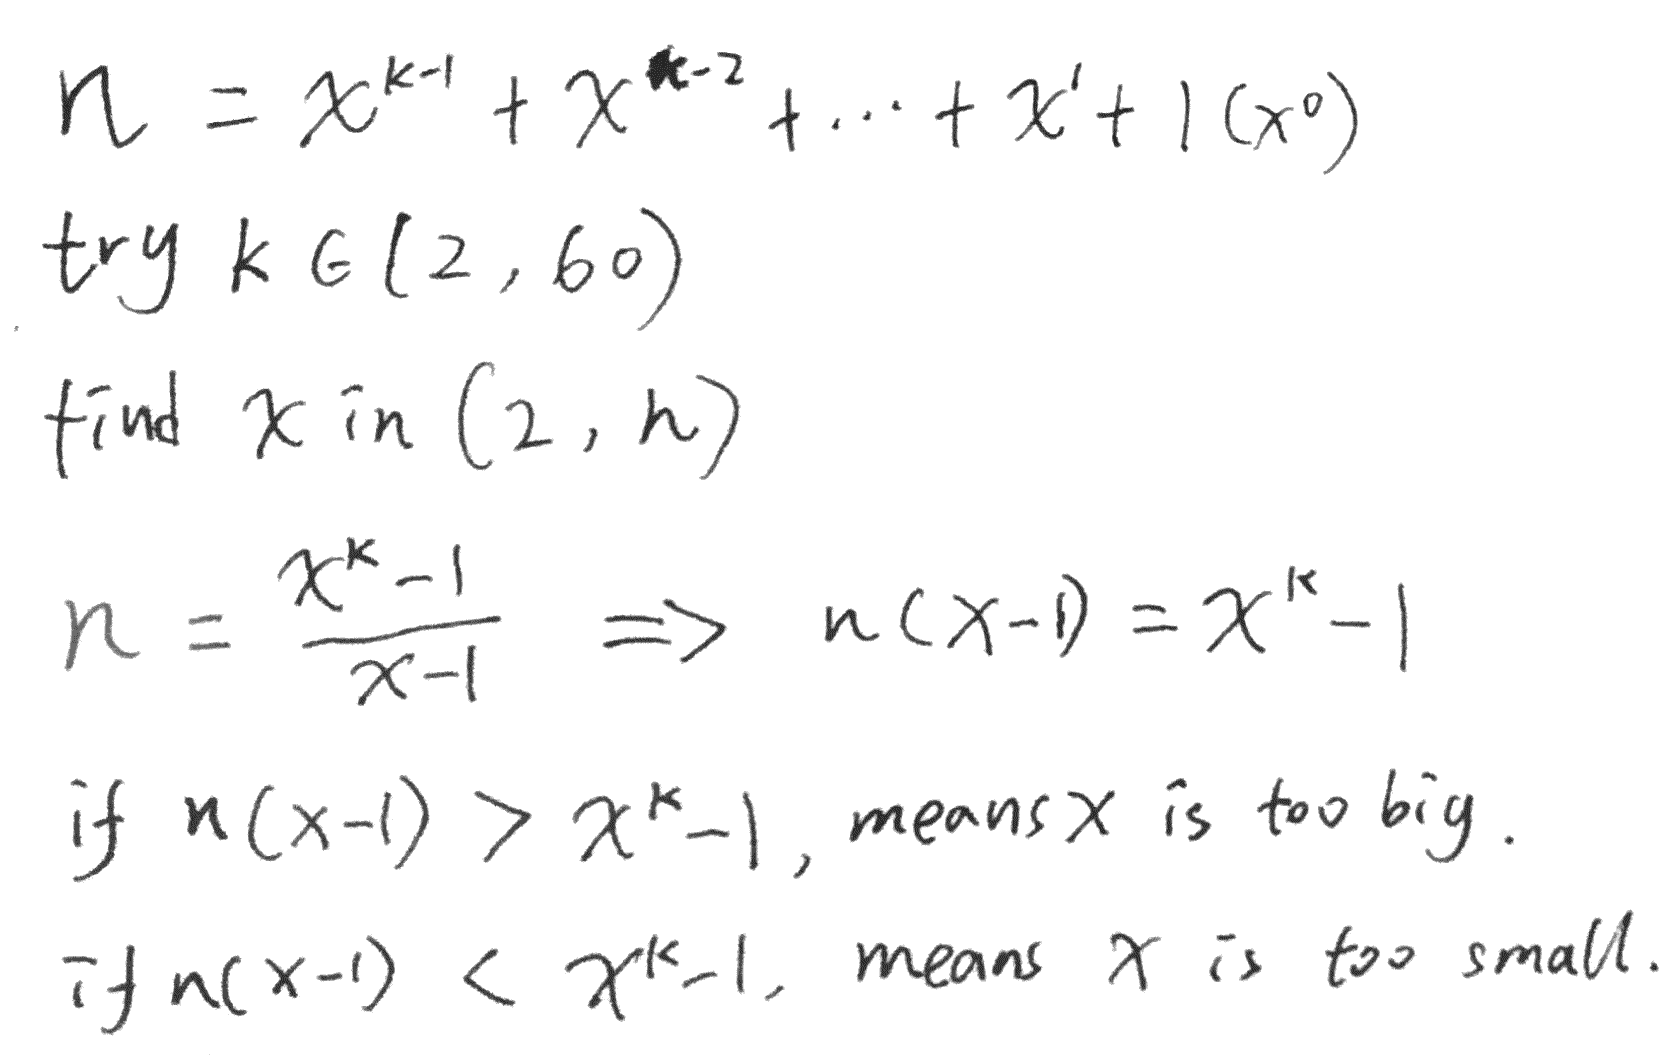 n = x^{k-1} + x^{k-2} + ... + x^1 + 1 (x^0)
try k ∈ (2, 60)
find x in (2, n)
n = \frac{x^k - 1}{x - 1} ⇒ n(x-1) = x^k - 1
if n(x-1) > x^k - 1, means x is too big.
if n(x-1) < x^k - 1, means x is too small.